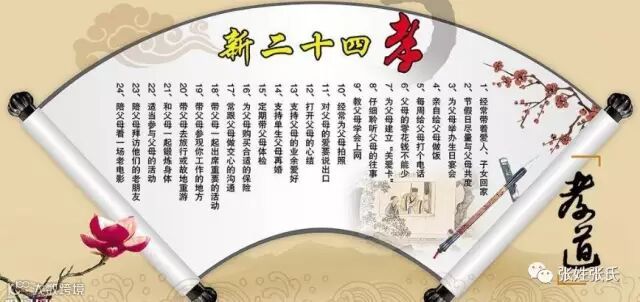 新二十四孝
1、经常带着爱人、子女回家
2、节假日尽量与父母共度
3、为父母举办生日宴会
4、亲自给父母做饭
5、每周给父母打个电话
6、父母的零花钱不能少
7、为父母建立“关爱卡”
8、仔细聆听父母的往事
9、教父母学会上网
10、经常为父母拍照
11、对父母的爱要说出口
12、打开父母的心结
13、支持父母的业余爱好
14、支持单身父母再婚
15、定期带父母体检
16、为父母购买合适的保险
17、常跟父母做交心的沟通
18、带父母一起出席重要的活动
19、带父母参观你工作的地方
20、带父母去旅行或故地重游
21、和父母一起锻炼身体
22、适当参与父母的活动
23、陪父母拜访他们的老朋友
24、陪父母看一场老电影
「孝道
张姓张氏
大数跨境